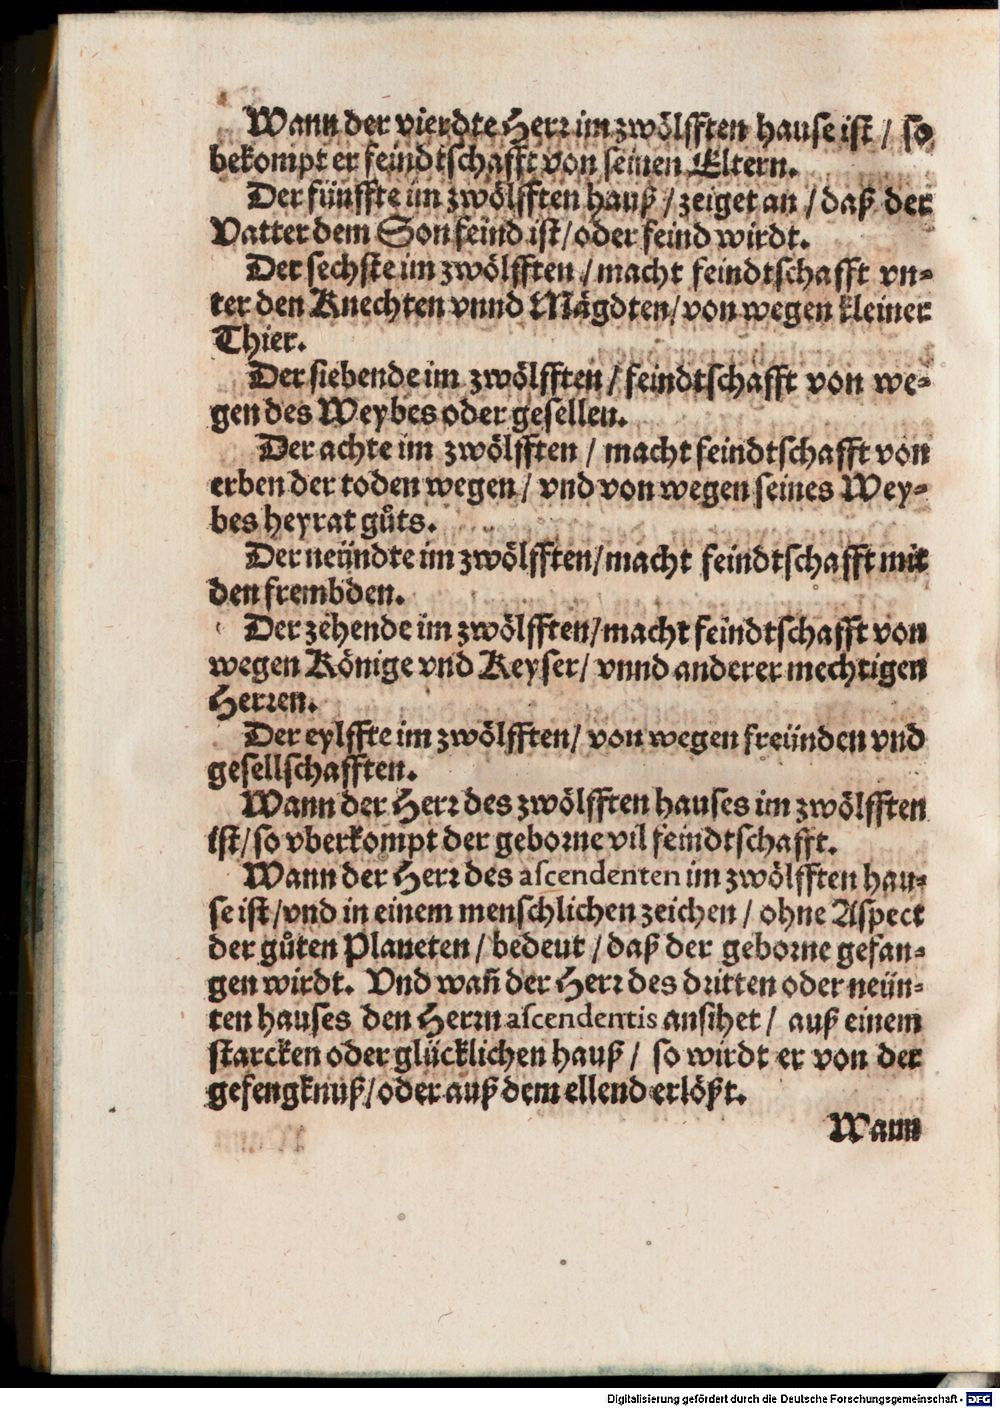 Wann der vierdte Herr im zwölfften hause ist / so
bekompt er feindtschafft von seinen Eltern.
Der fünffte im zwölfften hauß / zeiget an / daß der
Vatter dem Son feind ist / oder feind wirdt.
Der sechste im zwölfften / macht feindtschafft vn-
ter den Knechten vnnd Mägdten / von wegen kleiner
Thier.
Der siebende im zwölfften / feindtschafft von we-
gen des Weybes oder gesellen.
Der achte im zwölfften / macht feindtschafft von
erben der toden wegen / vnd von wegen seines Wey-
bes heyrat gůts.
Der neündte im zwölfften / macht feindtschafft mit
den frembden.
Der zehende im zwölfften / macht feindtschafft von
wegen Könige vnd Keyser / vnnd anderer mechtigen
Herren.
Der eylffte im zwölfften / von wegen freünden vnd
gesellschafften.
Wann der Herr des zwölfften hauses im zwölfften
ist / so vberkompt der geborne vil feindtschafft.
Wann der Herr des ascendenten im zwölfften hau-
se ist / vnd in einem menschlichen zeichen / ohne Aspect
der gůten Planeten / bedeut / daß der geborne gefan-
gen wirdt. Vnd wañ der Herr des dritten oder neün-
ten hauses den Herrn ascendentis ansihet / auß einem
starcken oder glücklichen hauß / so wirdt er von der
gefengknuß / oder auß dem ellend erlößt.
Wann
Digitalisierung gefördert durch die Deutsche Forschungsgemeinschaft - DFG